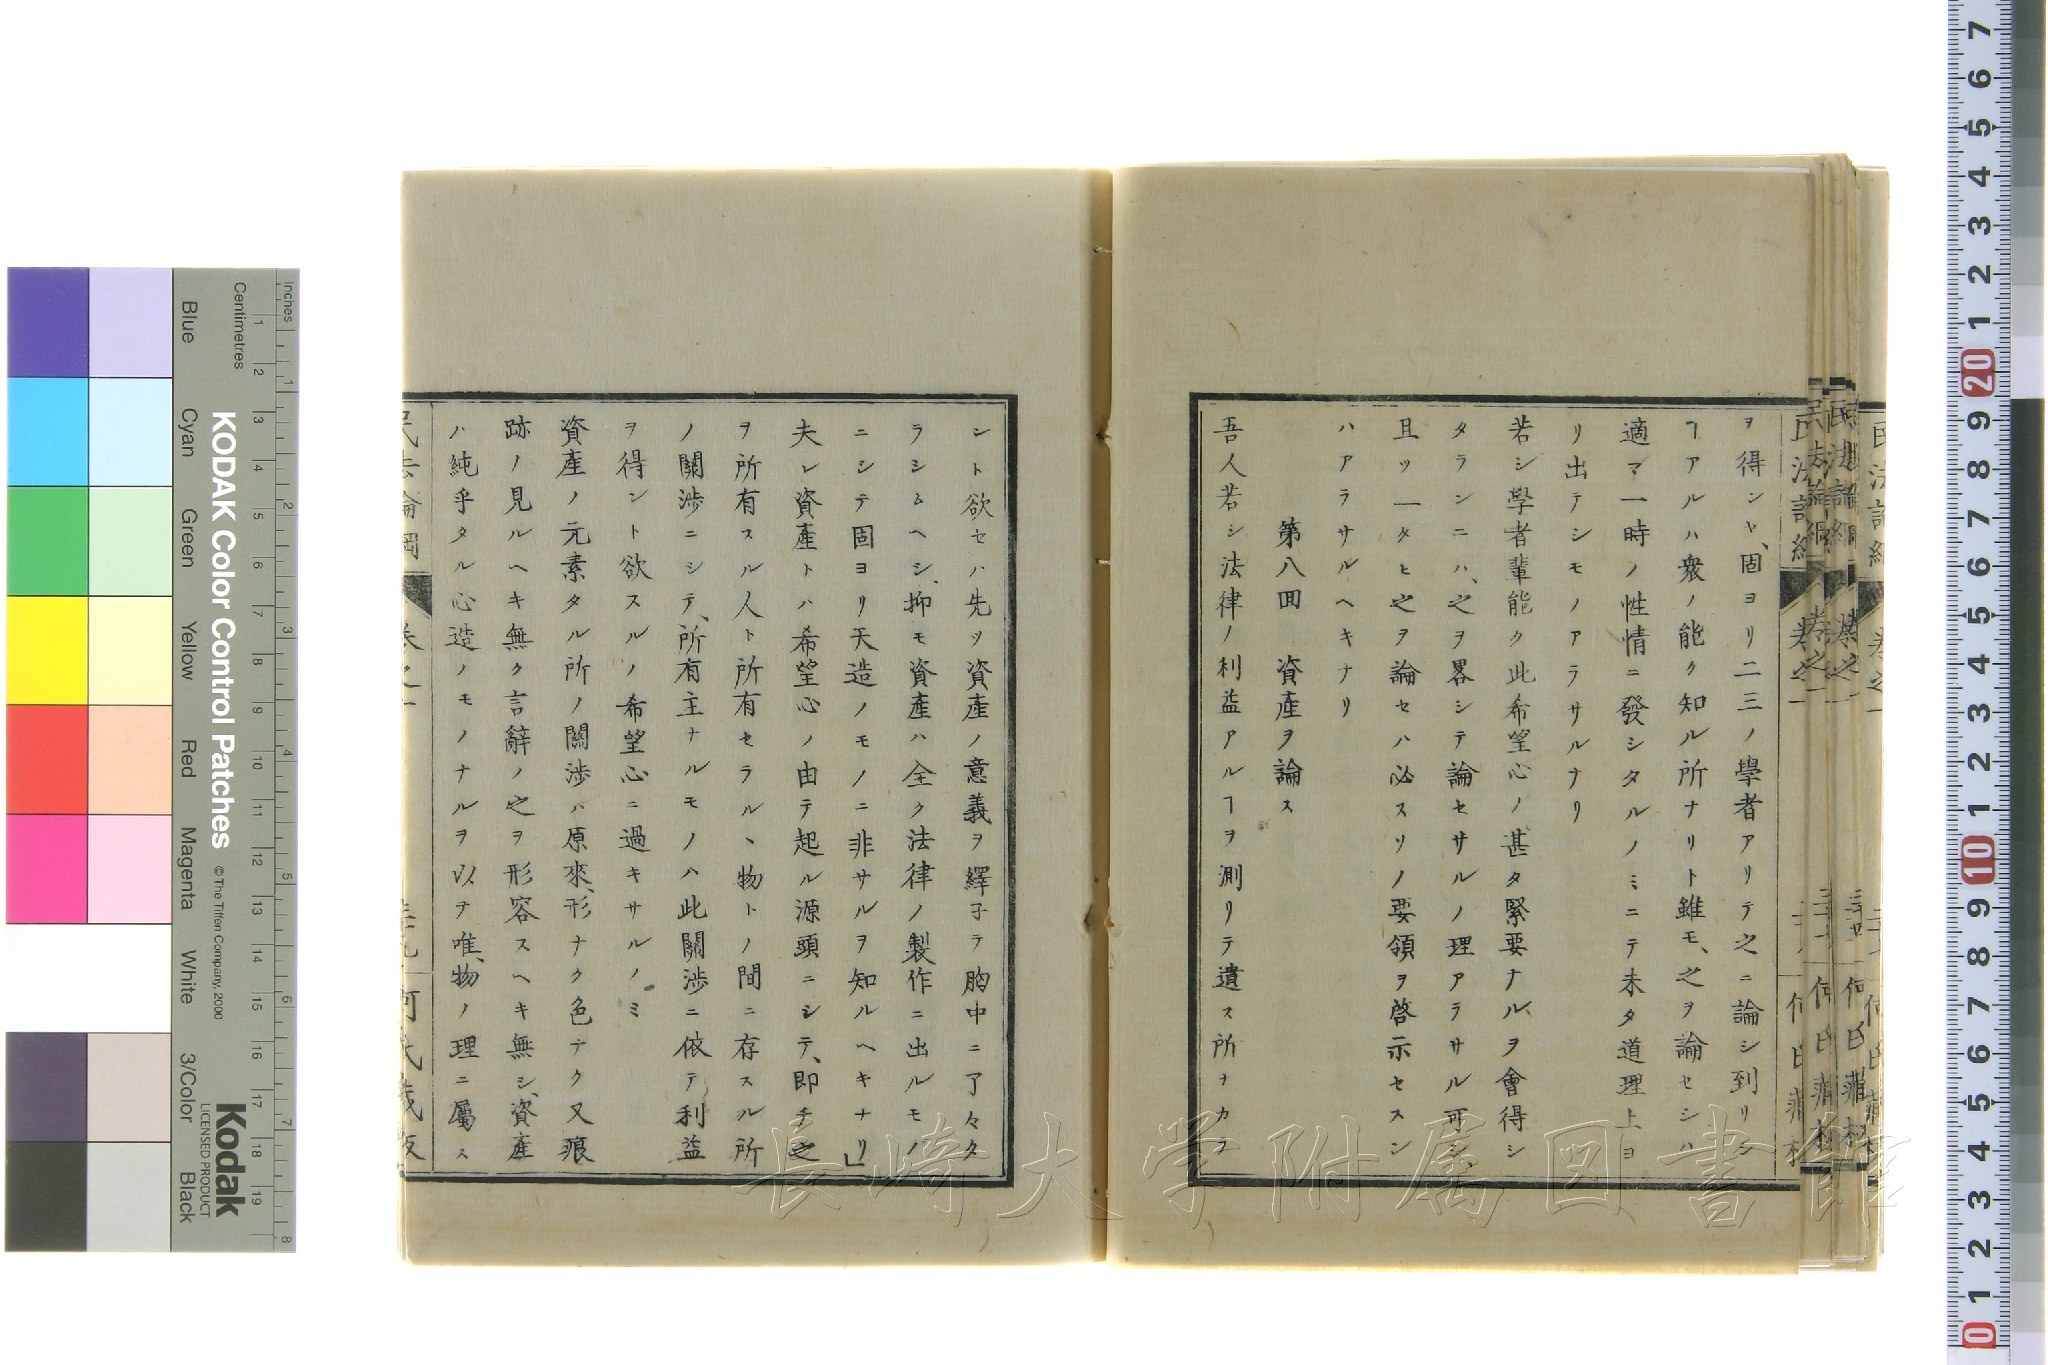 ヲ得ンヤ、固ヨリ二三ノ學者アリテ之ニ論シ到リシ
ヿアルハ衆ノ能ク知ル所ナリト雖モ、之ヲ論セシハ
適マ一時ノ性情ニ發シタルノミニテ未タ道理上ヨ
リ出テシモノアラサルナリ
若シ學者輩能ク此希望心ノ甚タ緊要ナルヲ會得シ
タランニハ、之ヲ畧シテ論セサルノ理アラサル可シ、
且ツ一タヒ之ヲ論セハ必スソノ要領ヲ啓示セスン
ハアラサルヘキナリ
第八囬 資產ヲ論ス
吾人若シ法律ノ利益アルヿヲ測リテ遺ス所ナカラ
ント欲セハ先ツ資產ノ意義ヲ繹子テ胸中ニ了々タ
ラシムヘシ、抑モ資產ハ全ク法律ノ製作ニ出ルモノ
ニシテ固ヨリ天造ノモノニ非サルヲ知ルヘキナリ」
夫レ資產トハ希望心ノ由テ起ル源頭ニシテ、即チ之
ヲ所有スル人ト所有セラルヽ物トノ間ニ存スル所
ノ關涉ニシテ、所有主ナルモノハ此關涉ニ依テ利益
ヲ得ント欲スルノ希望心ニ過キサルノミ
資產ノ元素タル所ノ關涉ハ原來、形ナク色ナク又痕
跡ノ見ルヘキ無ク言辭ノ之ヲ形容スヘキ無シ、資產
ハ純乎タル心造ノモノナルヲ以テ唯、物ノ理ニ屬ス
民法論綱
卷之一
何氏藏版
長崎大学附属図書館
KODAK Color Control Patches
© The Tiffen Company, 2000
Kodak
LICENSED PRODUCT
Inches
Centimetres
Blue
Cyan
Green
Yellow
Red
Magenta
White
3/Color
Black
1 2 3 4 5 6 7 8 9 10 11 12 13 14 15 16 17 18 19
1 2 3 4 5 6 7 8
7 6 5 4 3 2 1 20 9 8 7 6 5 4 3 2 1 10 9 8 7 6 5 4 3 2 1 0